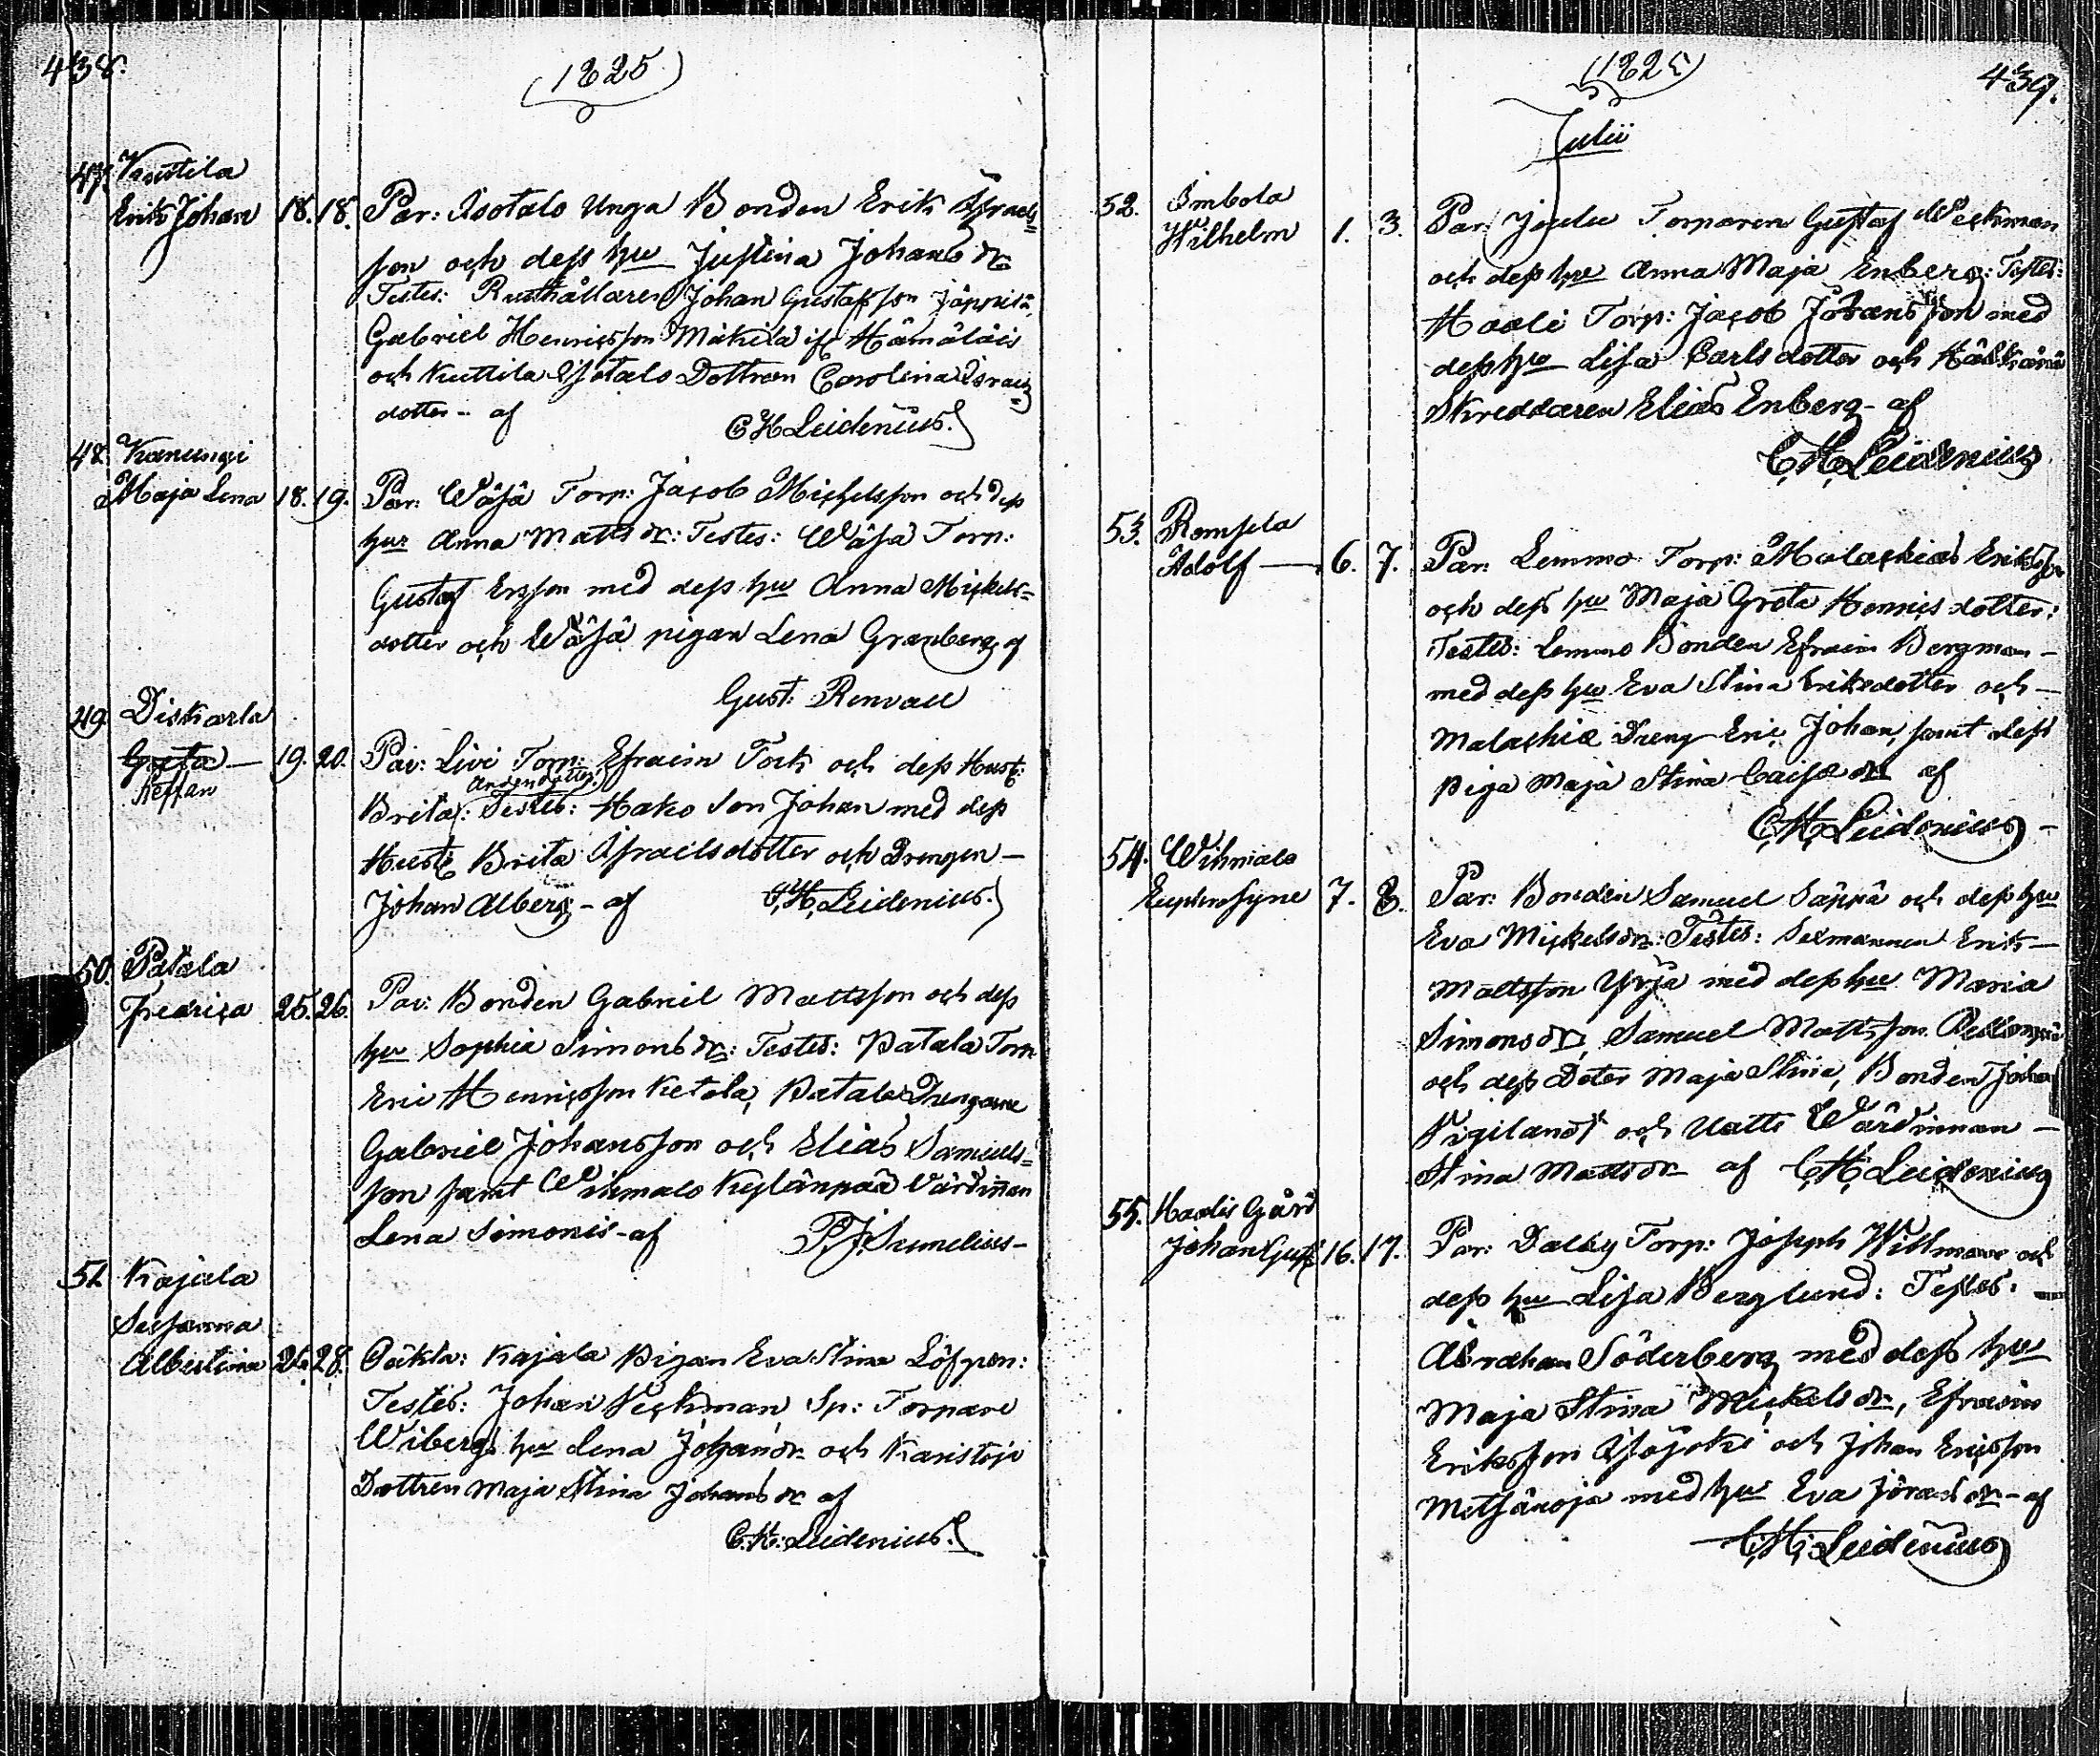 438.
(1825)
47. Knutila
Erik Johan 18. 18. Par: Isotalo Unga Bonden Erik Israels=
son och dess hu Justina Johans dr
Testes: Rusthållaren Johan Gustafsson Jäppilä,
Gabriel Henricsson Mäkilä if Hämäläis
och Kuttila Isotalo Dottren Carolina Israels
dotter - af C H Leidenius.
48. Kanungi
Maja Lena 18. 19. Par: Wäsä Torp: Jacob Michelsson och dess
hu Anna Matts dr: Testes: Wäsä Torp:
Gustaf Ersson med dess hu Anna Mickels=
dotter och Wäsä pigan Lena Granberg af
Gust: Renvall
49. Diskarla
Greta — 19. 20. Par: Livi Torp: Efraim Fock och dess Hust:
Steffan
Andersdotter:
Brita: Testes: Hako Son Johan med dess
Hust: Brita Israelsdotter och Drengen —
Johan Alberg - af C.H. Leidenius.
50. Patala
Fredrica 25. 26. Par: Bonden Gabriel Mattsson och dess
hu Sophia Simons dr: Testes: Patala Torp
Eric Henricsson Ketola, Patala Drengarne
Gabriel Johansson och Elias Samuels=
son samt Wihmalo Kylänpää Värdinnan
Lena Simonis - af P.J. Sumelius -
51. Kajala
Susanna
Albertina 26. 28. Oäkta: Kajala Pigan Eva Stina Löfgren:
Testes: Johan Veckman, Sp: Torpare
Wibergs hu Lena Johans dr och Karistoja
Dottren Maja Stina Johans dr af
C.H: Leidenius.
(1825) 439.
Julii
52. Immola
Wilhelm 1. 3. Par: Torparen Gustaf Weckman
och dess hu Anna Maja Enberg: Testes:
Haali Torp: Jacob Johansson med
dess hu Lisa Carls dotter och
Skreddaren Elias Enberg - af
C.H. Leidenius
53. Romsila
Adolf — 6. 7. Par: Lemmo Torp: Malachias Eriksson
och dess hu Maja Greta Henrics dotter:
Testes: Lemmo Bonden Efraim Bergman -
med dess hu Eva Stina Eriksdotter och -
Malachiæ Dreng Eric Johan, samt dess
piga Maja Stina Caisa dr af
C.H. Leidenius -
54. Wihmalo
7. 8. Par: Bonden Samuel Säppä och dess hu
Eva Mickels dr: Testes: Sexmannen Erik -
Mattsson Yrjä med dess hu Maria
Simons dr, Samuel Mattsson
och dess Doter Maja Stina, Bonden Johan
Vigilands och Uatti Wärdinnan —
Stina Matts dr af C.H. Leidenius
55. Haalis Gård
Johan Gust: 16. 17. Par: Dalby Torp: Joseph Willman och
dess hu Lisa Berglund: Testes: —
Abraham Söderberg med dess hu
Maja Stina Mickels dr, Efraim
Eriksson Isojoki och Johan Ericsson
Metsänoja med hu Eva Jörans dr - af
C.H. Leidenius